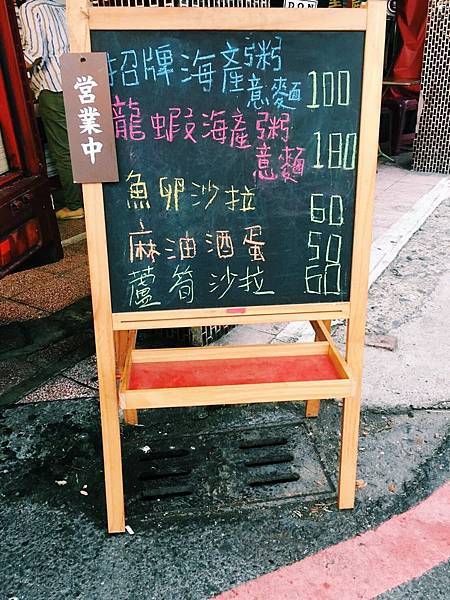 DON
営業中
招牌海產粥
意麵 100
龍蝦海產粥
意麵 180
魚卵沙拉 60
麻油酒蛋 50
蘆筍沙拉 60